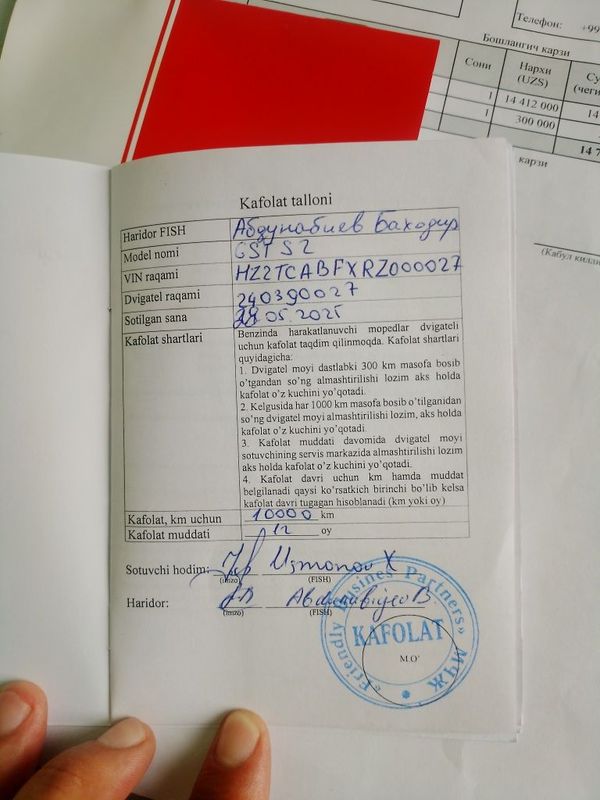 Телефон: +99
Бошлангич карзи
Сони
Нархи
(UZS)
Су
(чеги
1 14 412 000 14
1 300 000
14 7
карзи
(Кабул килли
Kafolat talloni
Haridor FISH Абдунабиев Баходир
Model nomi GST S2
VIN raqami HZ2TCABFXRZ000027
Dvigatel raqami 240390027
Sotilgan sana 28.05.2025
Kafolat shartlari Benzinda harakatlanuvchi mopedlar dvigateli
uchun kafolat taqdim qilinmoqda. Kafolat shartlari
quyidagicha:
1. Dvigatel moyi dastlabki 300 km masofa bosib
o'tgandan so'ng almashtirilishi lozim aks holda
kafolat o'z kuchini yo'qotadi.
2. Kelgusida har 1000 km masofa bosib o'tilganidan
so'ng dvigatel moyi almashtirilishi lozim, aks holda
kafolat o'z kuchini yo'qotadi.
3. Kafolat muddati davomida dvigatel moyi
sotuvchining servis markazida almashtirilishi lozim
aks holda kafolat o'z kuchini yo'qotadi.
4. Kafolat davri uchun km hamda muddat
belgilanadi qaysi ko'rsatkich birinchi bo'lib kelsa
kafolat davri tugagan hisoblanadi (km yoki oy)
Kafolat, km uchun 10000 km
Kafolat muddati 12 oy
Sotuvchi hodim: Usmonov X
(imzo) (FISH)
Haridor: Abdunabiyev B.
(imzo) (FISH)
«Friendly Busines Partners» МЧЖ
KAFOLAT
M.O'